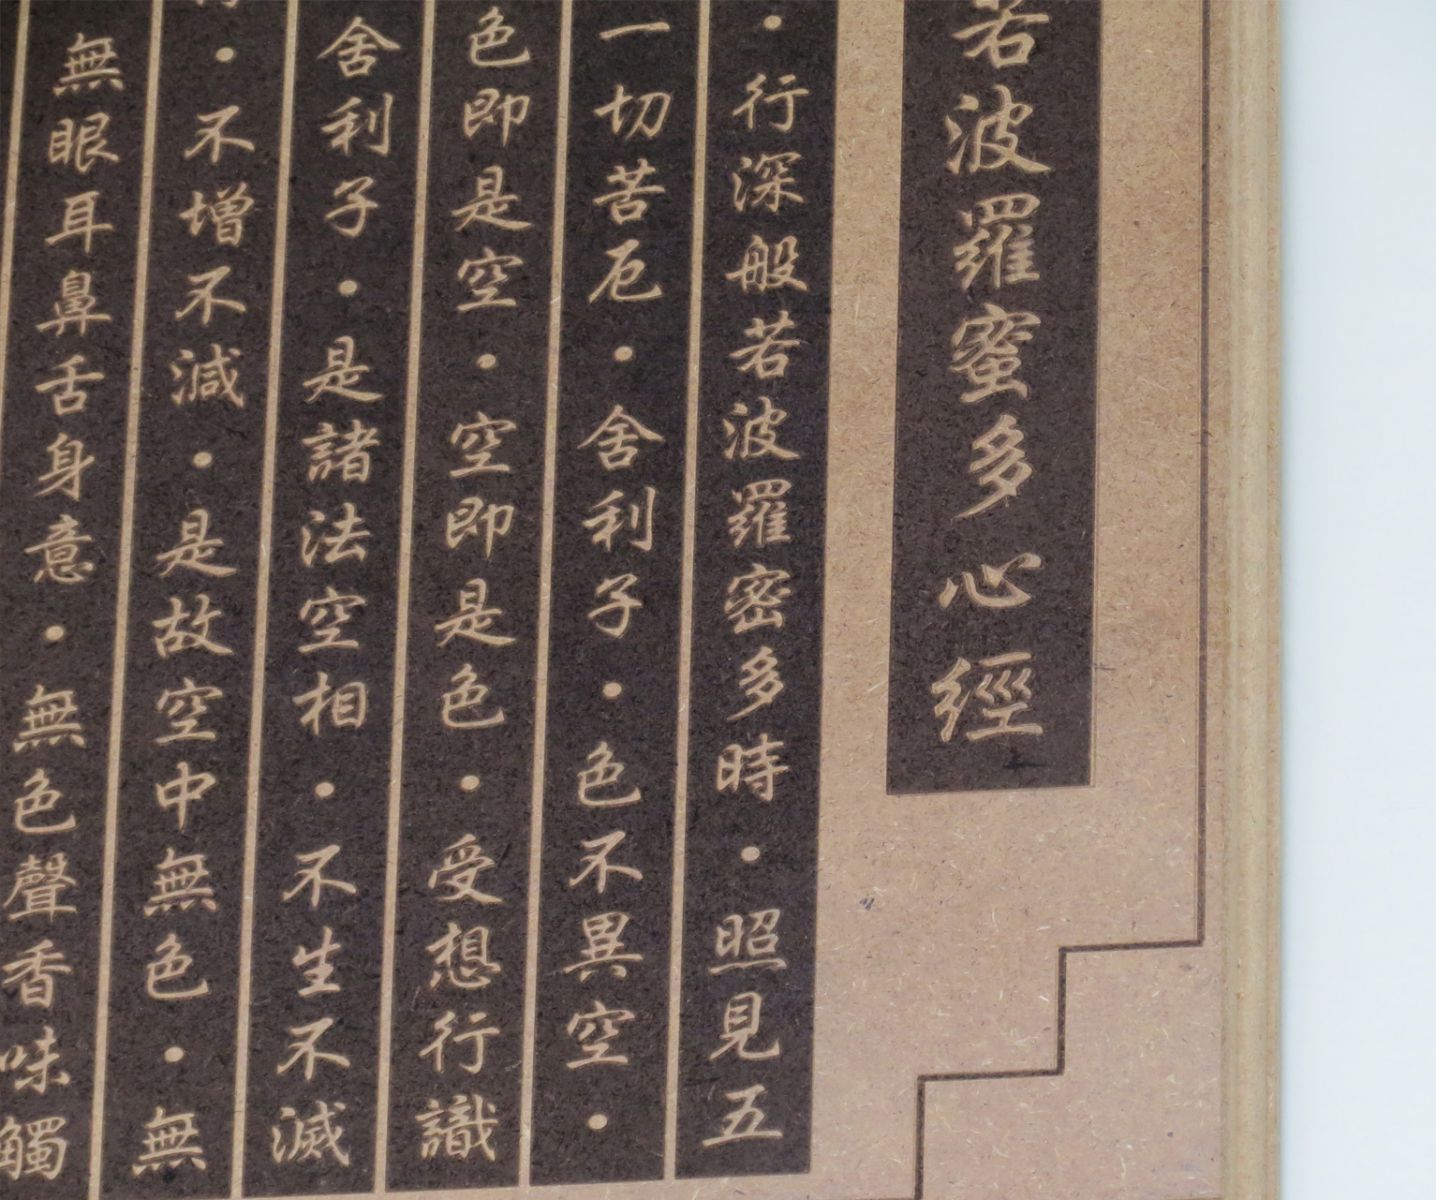 若波羅蜜多心經
・行深般若波羅密多時・照見五
一切苦厄・舍利子・色不異空・
色即是空・空即是色・受想行識
舍利子・是諸法空相・不生不滅
・不增不減・是故空中無色・無
無眼耳鼻舌身意・無色聲香味觸